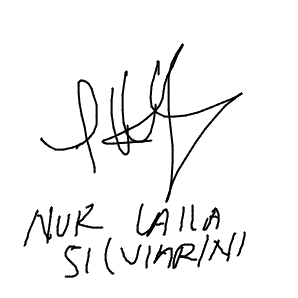 NUR LAILA
SILVIARINI